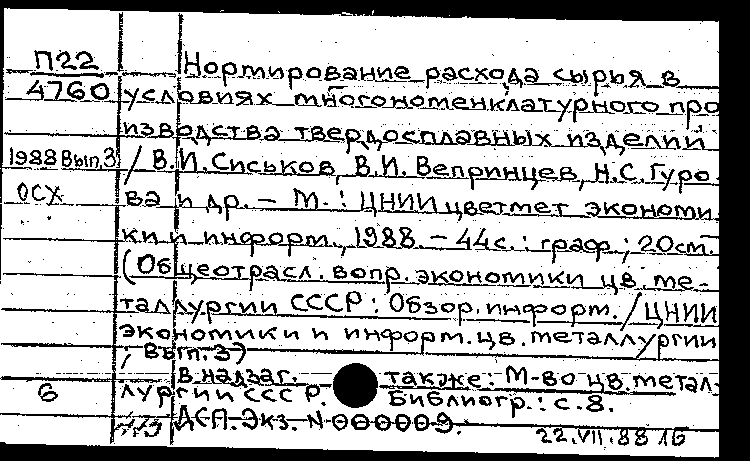 П22
4760
Нормирование расхода сырья в
условиях многономенклатурного про
изводства твердосплавных изделий
1988 Вып.3
/ В.И.Сиськов, В.И. Вепринцев, Н.С.Гуро-
ОСХ
ва и др. – М.: ЦНИИцветмет экономи-
ки и информ., 1988. – 44с.: граф.; 20см.
(Общеотрасл. вопр. экономики цв. ме-
таллургии СССР: Обзор. информ. / ЦНИИ
экономики и информ. цв. металлургии
; Вып. 3)
В надзаг. также: М-во цв. метал-
6
лургии СССР. Библиогр.: с. 8.
ДСП. Экз. N 000009.
22.VII.88